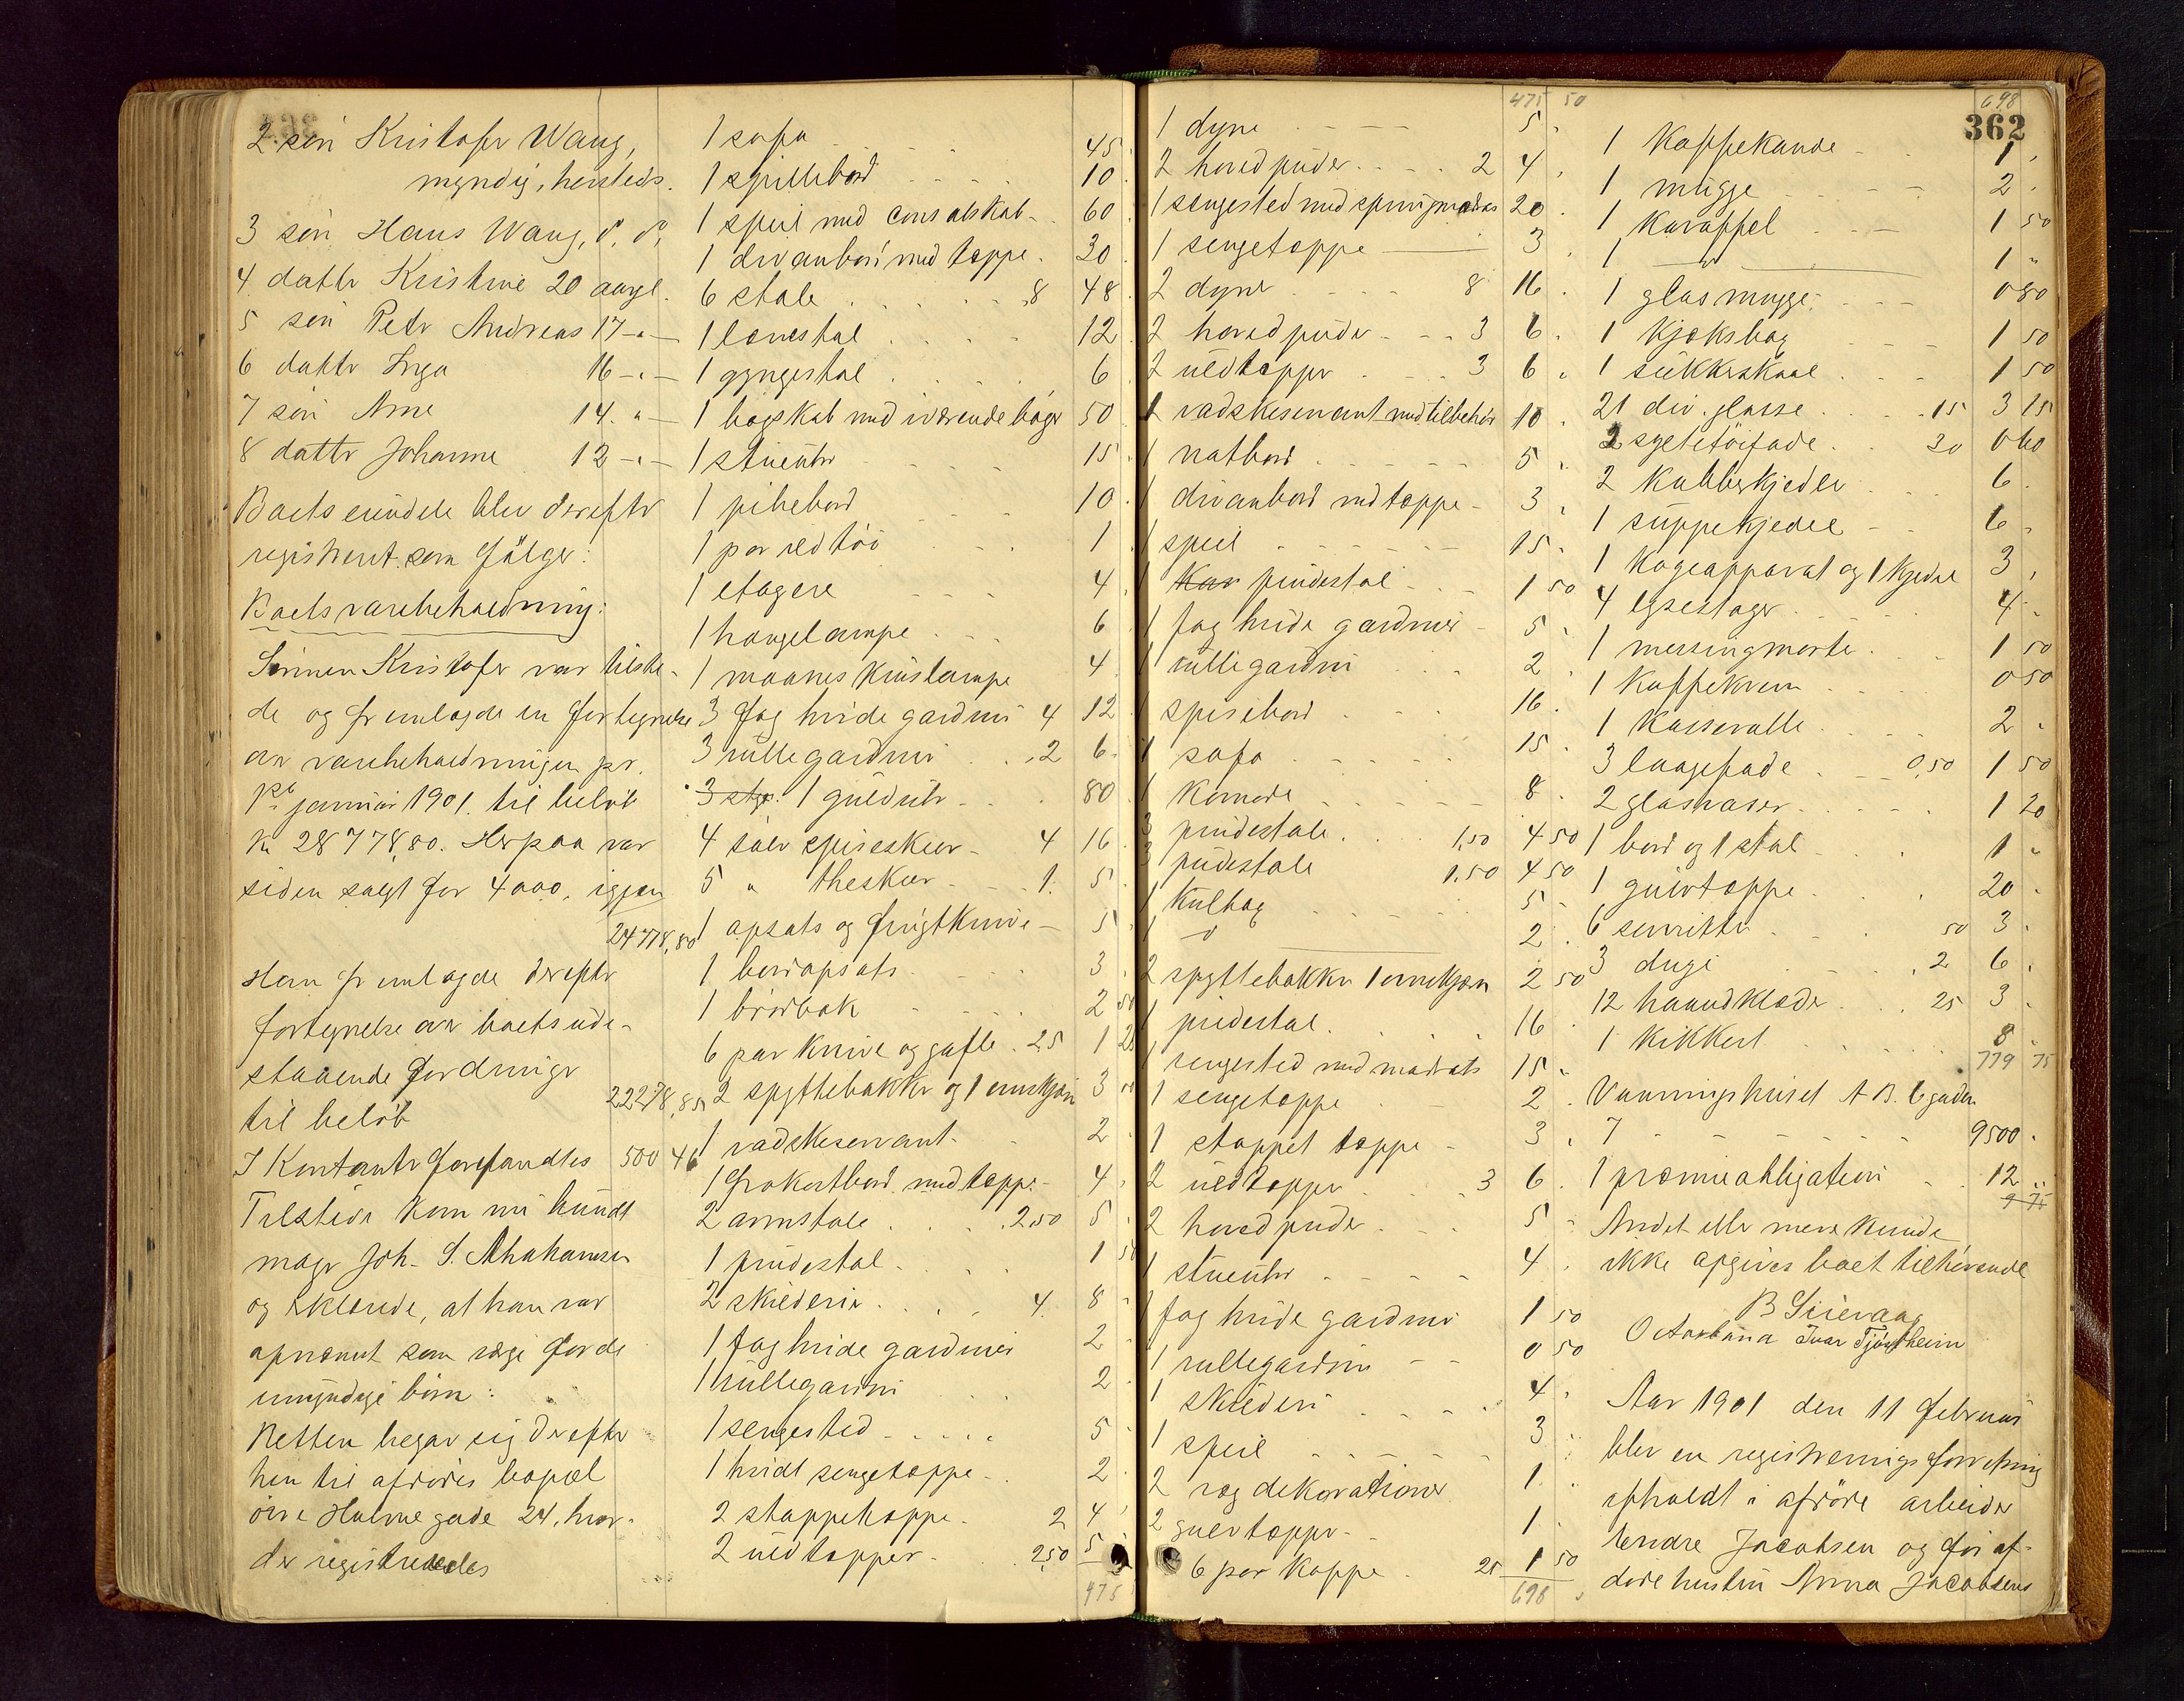 2. søn Kristofer Wang,
myndig, hersteds.
3 søn Hans Wang, d. d.
4 datter Kristine 20 aargl.
5 søn Peter Andreas 17 -"-
6 datter Inga 16 -"-
7 søn Arne 14. "-
8 datter Johanne 12 -"-
Boets eiendele blev derefter
registreret som følger:
Boets varebeholdning:
Sønnen Kristofer var tilste-
de og fremlagde en fortegnelse
over varebeholdningen pr.
1ste januar 1901. til beløb
kr 28778,80. Herpaa var
siden solgt for 4000, igjen
24778,80
Han fremlagde derefter
fortegnelse over boets ude-
staaende fordringer
til beløb 22278,85
I Kontanter forefandtes 500 46
Tilstede kom nu bundt
mager Joh. S. Abrahamsen
og erklærede, at han var
opnævnt som værge for de
umyndige børn:
Retten begav sig derefter
hen til afdødes bopæl
øvre Holmegade 24, hvor-
der registreredes
1 sofa 45
1 spillebord 10
1 speil med consolskab 60
1 divanbord med tæppe 30
6 stole 8 48
1 lænestol 12
1 gyngestol 6
1 bogskab med iværende bøger 50
1 stueuhr 15
1 pibebord 10
1 par ildtøi 1
1 etagere 4
1 hængelampe 6
1 maaneskinslampe 4
3 fag hvide gardiner 4 12
3 rullegardiner 2 6
3 stp. 1 guldur 80
4 sølv spiseskeer 4 16
5 " theskeer 1. 5
1 opsats og frugtknive 5
1 bordopsats 3
1 brødbak 2 50
6 par knive og gafler 25 1 25
2 spyttebakker og 1 ovnskjærm 3
1 vadskeservant 2
1 frokostbord med tæppe 4
2 armstole 2,50 5
1 pindestol 1 50
2 skilderier 4 8
1 fag hvide gardiner 2
1 rullegardin 2
1 sengested 5
1 hvidt sengetæppe 2
2 stoppetæppe 2 4
2 uldtæpper 2,50 5
475
475 50
1 dyne 5
2 hovedpuder 2 4
1 sengested med springmadras 20
1 sengetæppe 3
2 dyner 8 16
2 hovedpuder 3 6
2 uldtæpper 3 6
1 vadskeservant med tilbehør 10
1 natbord 5
1 divanbord med tæppe 3
1 speil 15
1 Kur pindestol 1 50
1 fag hvide gardiner 5
1 rullegardin 2
1 spisebord 16
1 sofa 15
1 komode 8
3 pindestole 1,50 4 50
3 pudestole 1,50 4 50
1 kulbog 5
1 d 2
2 spyttebakker 1 ovnskjærm 2 50
1 pidestal 16
1 sengested med madrats 15
1 sengetæppe 2
1 stoppet tæppe 3
2 uldtæpper 3 6
2 hovedpuder 5
1 stueuhr 4
1 fag hvide gardiner 1 50
1 rullegardin 0 50
1 skilderi 4
1 speil 3
2 vægdekorationer 1
2 gulvtæpper 1
6 par kopper 25 1 50
698
698
362
1 kaffekande 1
1 mugge 2
1 karaffel 1 50
1 — 1
1 glasmugge 0 80
1 kjæksbog 1 50
1 sukkerskaal 1 50
21 div. glasse 15 3 15
2 syltetøifade 30 0 60
2 kobberkjedler 6
1 suppekjedel 6
1 kogeapparat og 1 kjedel 3
4 lysestager 4
1 messingmorter 1 50
1 kaffekvern 0 50
1 kasserolle 2
3 laagefade 0,50 1 50
2 glasvaser 1 20
1 bord og 1 stol 1
1 gulvtæppe 20
6 servitter 50 3
3 duge 2 6
12 haandklæder 25 3
1 kikkert 8
779 75
Vaaningshuset N B. 6 gaden
7 9500
1 præmieobligation 12
9 75
Andet eller mere kunde
ikke opgives boet tilhørende
B Siievaag
Octaviana Ivar Tjøstheim
Aar 1901 den 11 februar
blev en registreringsforretning
afholdt i afdøde arbeider
Tendre Jacobsen og før af-
døde hustru Anna Jacobsens